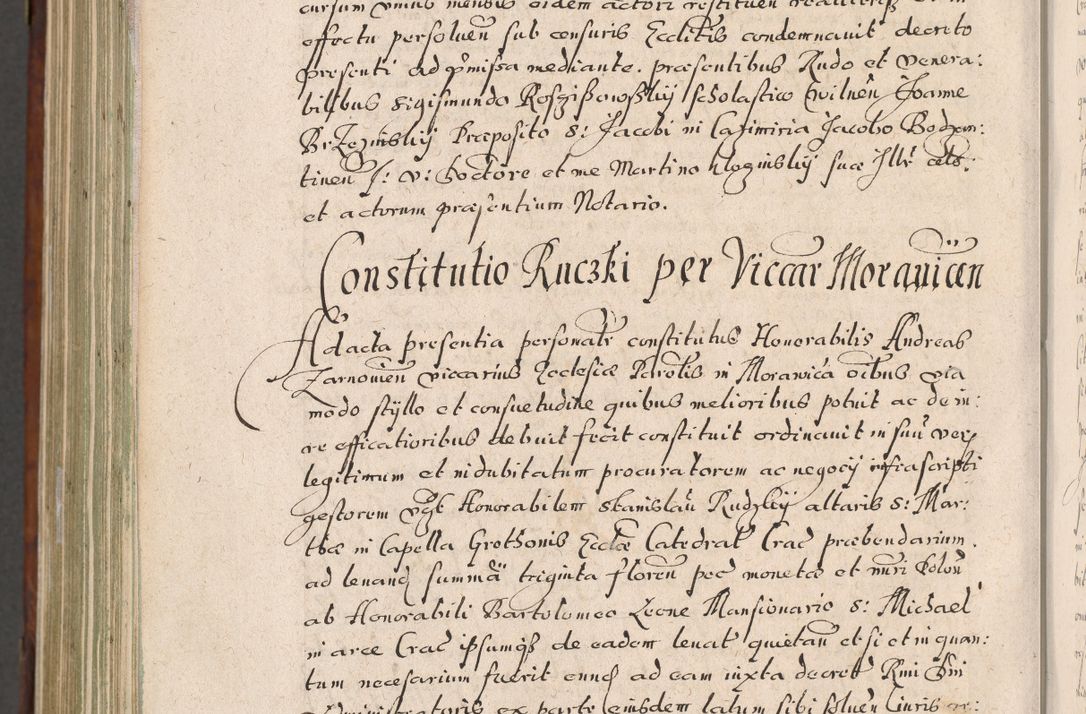 cursum unius mensis eidem actori restituen
effectu persoluen̄ sub censuris Ecclitis condemnauit decreto
presenti ad p̄missa mediante. præsentibus Rudo et venera:
bilibus Sigismundo Roszißowßkij scholastico Vilnen̄ Joanne
Brzezinskij Præposito S: Jacobi in Casimiria Jacobo Bodzan:
tinen̄ J: V: Doctore et me Martino Kloginskij suæ Illr̄ Cels:
et actorum præsentium Notario.
Constitutio Ruczki per Viccar Morauicen
Ad acta presentia personalr̄ constitutus Honorabilis Andreas
Zarnouien̄ viccarius Ecclesiæ Parotis in Morawica oibus via
modo styllo et consuetudine quibus melioribus potuit ac de iu:
re efficatioribus debuit fecit constituit ordinauit in suū ver
legitimum et indubitatum procuratorem ac negocij infrascripti
gestorem vzt Honorabilem Stanislaū Rudzkij altaris S: Mar:
thæ in Capella Grothonis Ecclæ Catedrat Crac præbendarium.
ad leuand summā triginta floren̄ pec monetæ et nūri Polon̄
ab Honorabili Bartolomeo Leone Mansionario S: Michael
in arce Crac ipsumqß de eadem leuat quietan̄ et si et in quan:
tum necesarium fuerit eund ad eam iuxta decret Rmi Dni
Administratoris ex parte eiusdem latum sibi soluen̄ Iuris